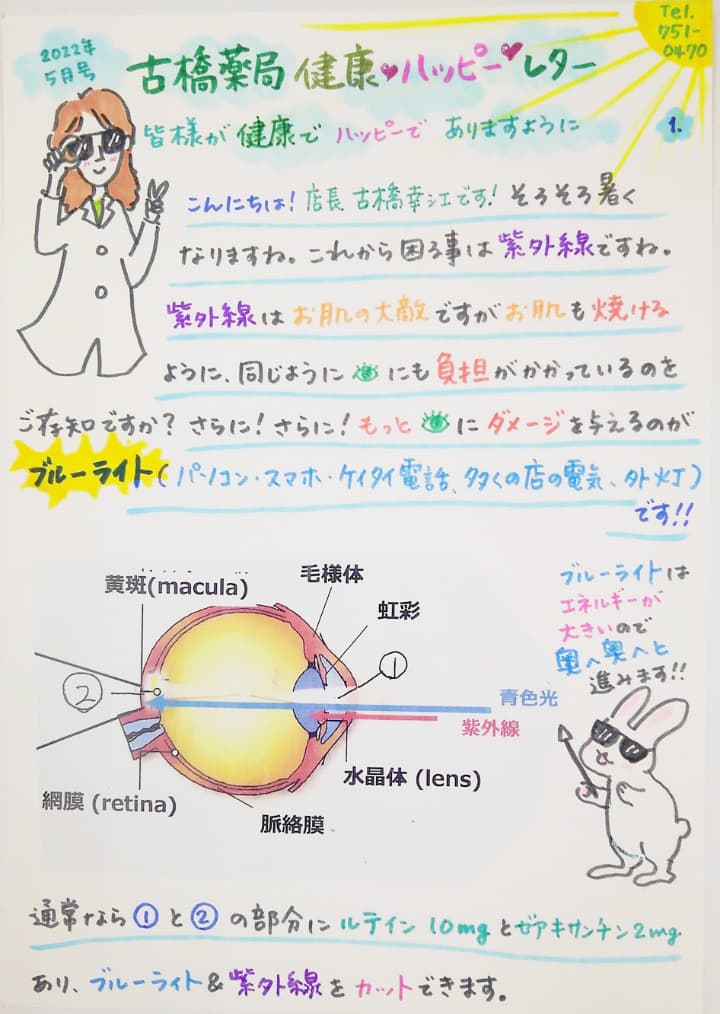 2022年
5月号
古橋薬局 健康♥ハッピー♥レター
Tel.
751-
0470
皆様が 健康で ハッピーで ありますように
1.
こんにちは! 店長 古橋幸江です! そろそろ暑く
なりますね。これから困る事は紫外線ですね。
紫外線はお肌の大敵ですがお肌も焼ける
ように、同じように にも負担がかかっているのを
ご存知ですか? さらに! さらに! もっと にダメージを与えるのが
ブルーライト(パソコン・スマホ・ケイタイ電話、多くの店の電気、外灯)
です!!
黄斑(macula)
毛様体
虹彩
①
②
青色光
紫外線
水晶体 (lens)
網膜 (retina)
脈絡膜
ブルーライトは
エネルギーが
大きいので
奥へ奥へと
進みます!!
通常なら①と②の部分にルテイン10mgとゼアキサンチン2mg
あり、ブルーライト&紫外線をカットできます。